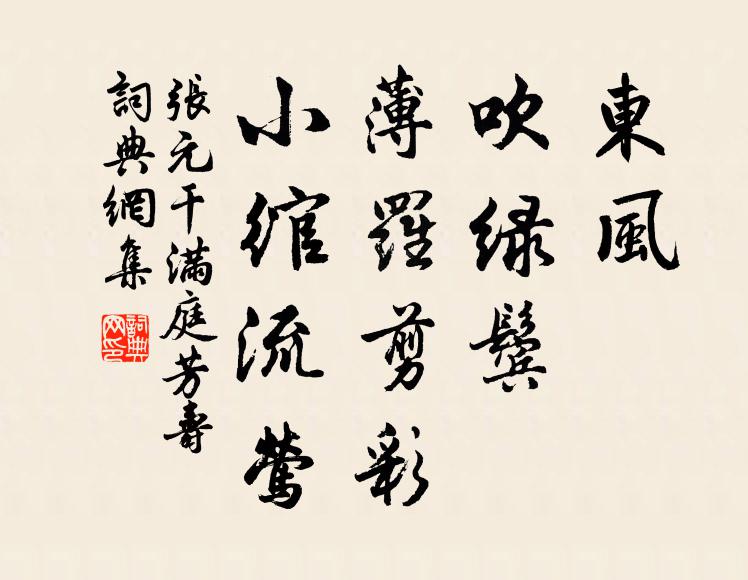 東風
吹綠鬢
薄羅剪彩
小綰流鶯
張元干滿庭芳壽
詞典網集
詞典
网印